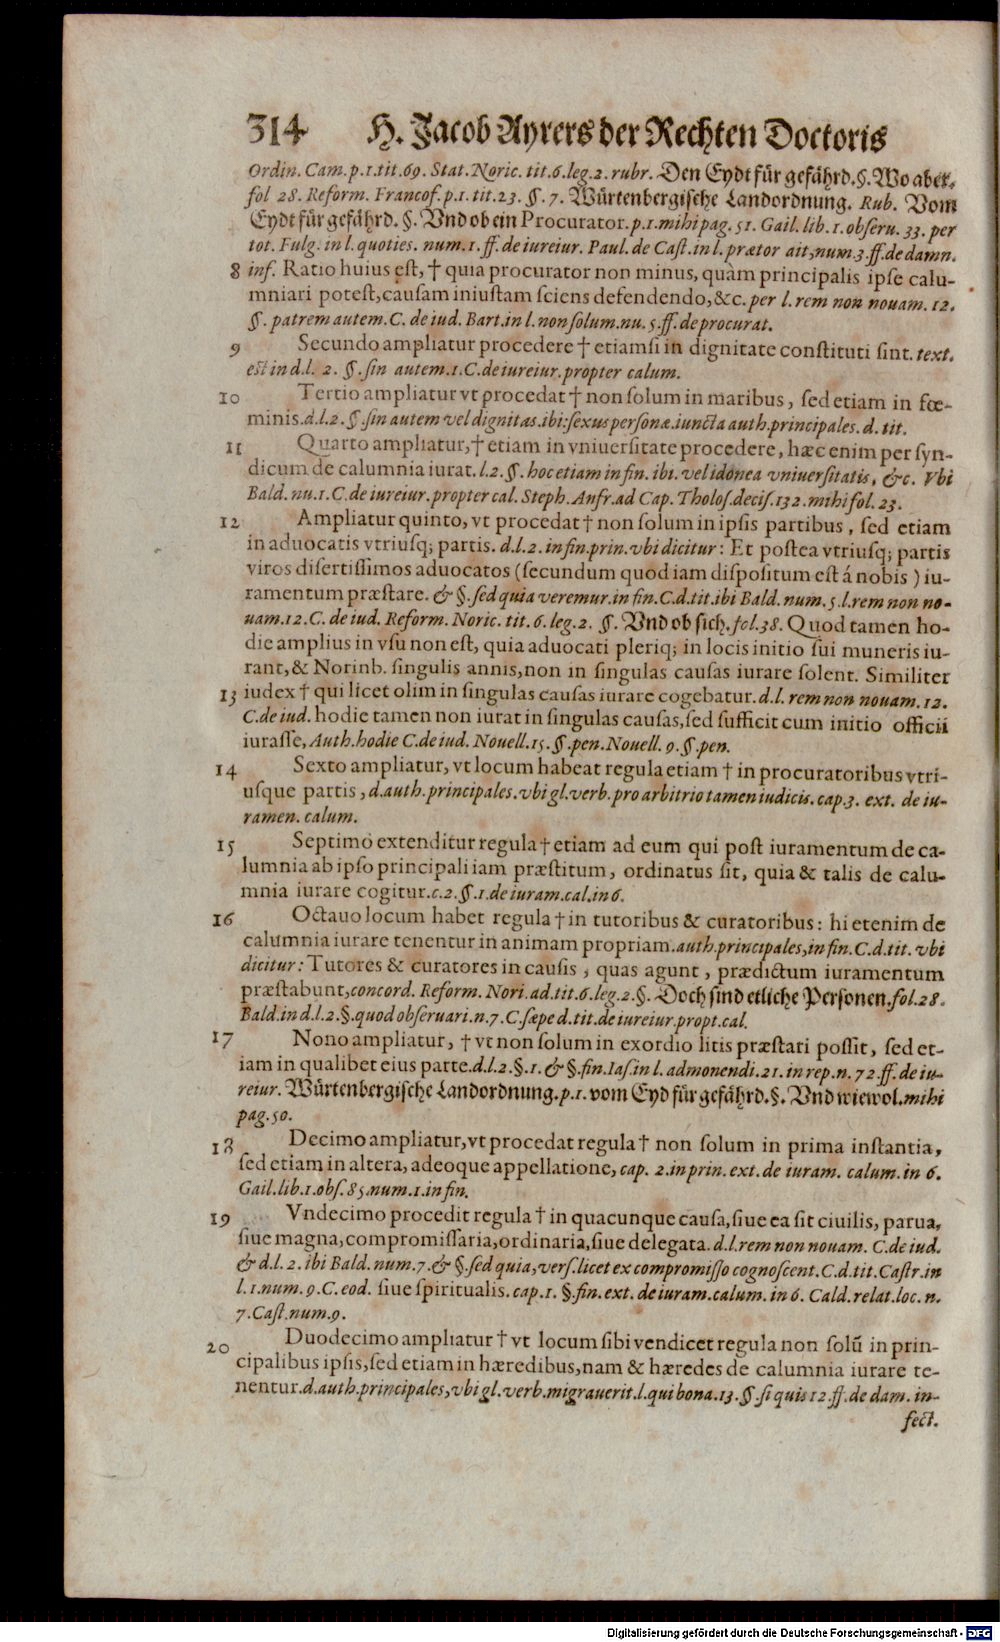 314 H. Jacob Ayrers der Rechten Doctoris
Ordin. Cam. p. 1. tit. 69. Stat. Noric. tit. 6. leg. 2. rubr. Den Eydt für gefährd. §. Wo aber.
fol 28. Reform. Francof. p. 1. tit. 23. §. 7. Würtenbergische Landordnung. Rub. Vom
Eydt für gefährd. §. Vnd ob ein Procurator. p. 1. mihi pag. 51. Gail. lib. 1. obseru. 33. per
tot. Fulg. in l. quoties. num. 1. ff. de iureiur. Paul. de Cast. in l. prætor ait, num. 3. ff. de damn.
8 inf. Ratio huius est, † quia procurator non minus, quàm principalis ipse calu-
mniari potest, causam iniustam sciens defendendo, &c. per l. rem non nouam. 12.
§. patrem autem. C. de iud. Bart. in l. non solum. nu. 5. ff. de procurat.
9 Secundo ampliatur procedere † etiamsi in dignitate constituti sint. text.
est in d. l. 2. §. sin autem. 1. C. de iureiur. propter calum.
10 Tertio ampliatur vt procedat † non solum in maribus, sed etiam in fœ-
minis. d. l. 2. §. sin autem vel dignitas. ibi: sexus personæ. iuncta auth. principales. d. tit.
11 Quarto ampliatur, † etiam in vniuersitate procedere, hæc enim per syn-
dicum de calumnia iurat. l. 2. §. hoc etiam in fin. ibi. vel idonea vniuersitatis, &c. Vbi
Bald. nu. 1. C. de iureiur. propter cal. Steph. Aufr. ad Cap. Tholos. decis. 132. mihi fol. 23.
12 Ampliatur quinto, vt procedat † non solum in ipsis partibus, sed etiam
in aduocatis vtriusq; partis. d. l. 2. in fin. prin. vbi dicitur: Et postea vtriusq; partis
viros disertissimos aduocatos (secundum quod iam dispositum est á nobis) iu-
ramentum præstare. & §. sed quia veremur. in fin. C. d. tit. ibi Bald. num. 5. l. rem non no-
uam. 12. C. de iud. Reform. Noric. tit. 6. leg. 2. §. Vnd ob sich. fol. 38. Quod tamen ho-
die amplius in vsu non est, quia aduocati pleriq; in locis initio sui muneris iu-
rant, & Norinb. singulis annis, non in singulas causas iurare solent. Similiter
13 iudex † qui licet olim in singulas causas iurare cogebatur. d. l. rem non nouam. 12.
C. de iud. hodie tamen non iurat in singulas causas, sed sufficit cum initio officii
iurasse, Auth. hodie C. de iud. Nouell. 15. §. pen. Nouell. 9. §. pen.
14 Sexto ampliatur, vt locum habeat regula etiam † in procuratoribus vtri-
usque partis, d. auth. principales. vbi gl. verb. pro arbitrio tamen iudicis. cap. 3. ext. de iu-
ramen. calum.
15 Septimo extenditur regula † etiam ad eum qui post iuramentum de ca-
lumnia ab ipso principali iam præstitum, ordinatus sit, quia & talis de calu-
mnia iurare cogitur. c. 2. §. 1. de iuram. cal. in 6.
16 Octauo locum habet regula † in tutoribus & curatoribus: hi etenim de
calumnia iurare tenentur in animam propriam. auth. principales, in fin. C. d. tit. vbi
dicitur: Tutores & curatores in causis, quas agunt, prædictum iuramentum
præstabunt, concord. Reform. Nori. ad. tit. 6. leg. 2. §. Doch sind etliche Personen. fol. 28.
Bald. in d. l. 2. §. quod obseruari. n. 7. C. sæpe d. tit. de iureiur. propt. cal.
17 Nono ampliatur, † vt non solum in exordio litis præstari possit, sed et-
iam in qualibet eius parte. d. l. 2. §. 1. & §. fin. Ias. in l. admonendi. 21. in rep. n. 72. ff. de iu-
reiur. Würtenbergische Landordnung. p. 1. vom Eyd für gefährd. §. Vnd wiewol. mihi
pag. 50.
18 Decimo ampliatur, vt procedat regula † non solum in prima instantia,
sed etiam in altera, adeoque appellatione, cap. 2. in prin. ext. de iuram. calum. in 6.
Gail. lib. 1. obs. 85. num. 1. in fin.
19 Vndecimo procedit regula † in quacunque causa, siue ea sit ciuilis, parua,
siue magna, compromissaria, ordinaria, siue delegata. d. l. rem non nouam. C. de iud.
& d. l. 2. ibi Bald. num. 7. & §. sed quia, vers. licet ex compromisso cognoscent. C. d. tit. Castr. in
l. 1. num. 9. C. eod. siue spiritualis. cap. 1. §. fin. ext. de iuram. calum. in 6. Cald. relat. loc. n.
7. Cast. num. 9.
20 Duodecimo ampliatur † vt locum sibi vendicet regula non solũ in prin-
cipalibus ipsis, sed etiam in hæredibus, nam & hæredes de calumnia iurare te-
nentur. d. auth. principales, vbi gl. verb. migrauerit. l. qui bona. 13. §. si quis 12 ff. de dam. in-
fect.
Digitalisierung gefördert durch die Deutsche Forschungsgemeinschaft - DFG